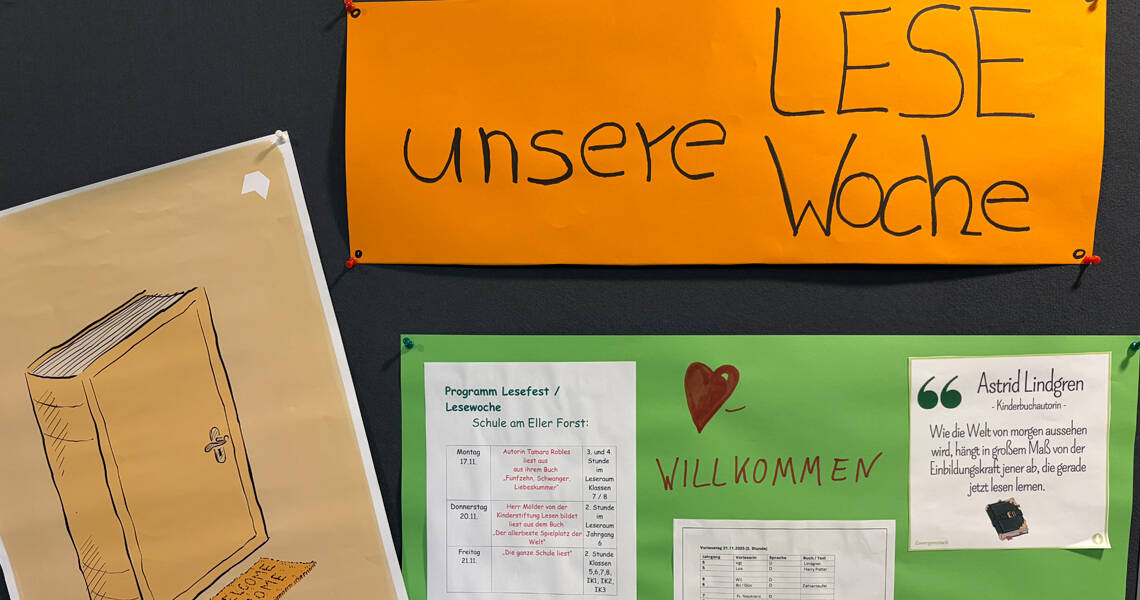 unsere
LESE
Woche
WELCOME
HOME
Programm Lesefest /
Lesewoche
Schule am Eller Forst:
Montag
17.11.
Autorin Tamara Robles
liest aus
aus ihrem Buch
„Fünfzehn, Schwanger,
Liebeskummer“
3. und 4.
Stunde
im
Leseraum
Klassen
7 / 8
Donnerstag
20.11.
Herr Mölder von der
Kinderstiftung Lesen bildet
liest aus dem Buch
„Der allerbeste Spielplatz der
Welt“
2. Stunde
im
Leseraum
Jahrgang
6
Freitag
21.11.
„Die ganze Schule liest“
2. Stunde
Klassen
5,6,7,8,
IK1, IK2,
IK3
WILLKOMMEN
Vorlesetag 21.11.2025 (2. Stunde)
Jahrgang Vorleserin Sprache Buch / Text
5 D Lindgren
5 D Harry Potter
6
6
7
“
Astrid Lindgren
- Kinderbuchautorin -
Wie die Welt von morgen aussehen
wird, hängt in großem Maß von der
Einbildungskraft jener ab, die gerade
jetzt lesen lernen.